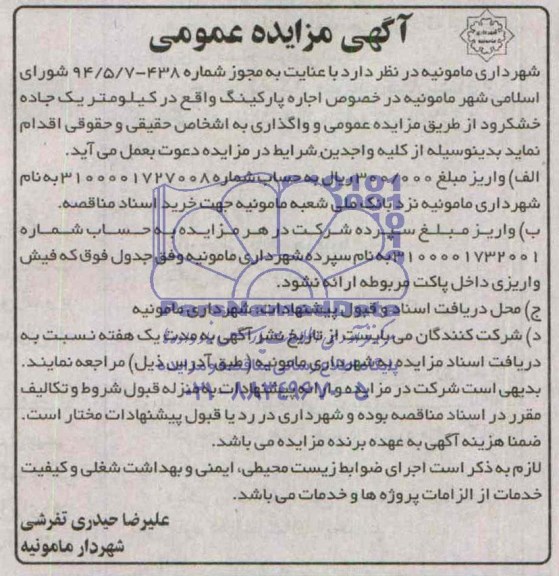 آگهی مزایده عمومی
شهرداری مامونیه در نظر دارد با عنایت به مجوز شماره ۴۳۸-۹۴/۵/۷ شورای
اسلامی شهر مامونیه در خصوص اجاره پارکینگ واقع در کیلومتر یک جاده
خشکرود از طریق مزایده عمومی و واگذاری به اشخاص حقیقی و حقوقی اقدام
نماید بدینوسیله از کلیه واجدین شرایط در مزایده دعوت بعمل می آید.
الف) واریز مبلغ ۳۰۰/۰۰۰ ریال به حساب شماره ۳۱۰۰۰۰۱۷۲۷۰۰۸ به نام
شهرداری مامونیه نزد بانک ملی شعبه مامونیه جهت خرید اسناد مناقصه.
ب) واریز مبلغ سپرده شرکت در هر مزایده به حساب شماره
۳۱۰۰۰۰۱۷۳۲۰۰۱ به نام سپرده شهرداری مامونیه وفق جدول فوق که فیش
واریزی داخل پاکت مربوطه ارائه نشود.
ج) محل دریافت اسناد و قبول پیشنهادات، شهرداری مامونیه
د) شرکت کنندگان می بایست از تاریخ نشر آگهی به مدت یک هفته نسبت به
دریافت اسناد مزایده به شهرداری مامونیه (طبق آدرس ذیل) مراجعه نمایند.
بدیهی است شرکت در مزایده و ارائه پیشنهادات به منزله قبول شروط و تکالیف
مقرر در اسناد مناقصه بوده و شهرداری در رد یا قبول پیشنهادات مختار است.
ضمنا هزینه آگهی به عهده برنده مزایده می باشد.
لازم به ذکر است اجرای ضوابط زیست محیطی، ایمنی و بهداشت شغلی و کیفیت
خدمات از الزامات پروژه ها و خدمات می باشد.
علیرضا حیدری تفرشی
شهردار مامونیه
ParsNamadData
۰۲۱-۸۸۳۴۹۶۷۰-۵